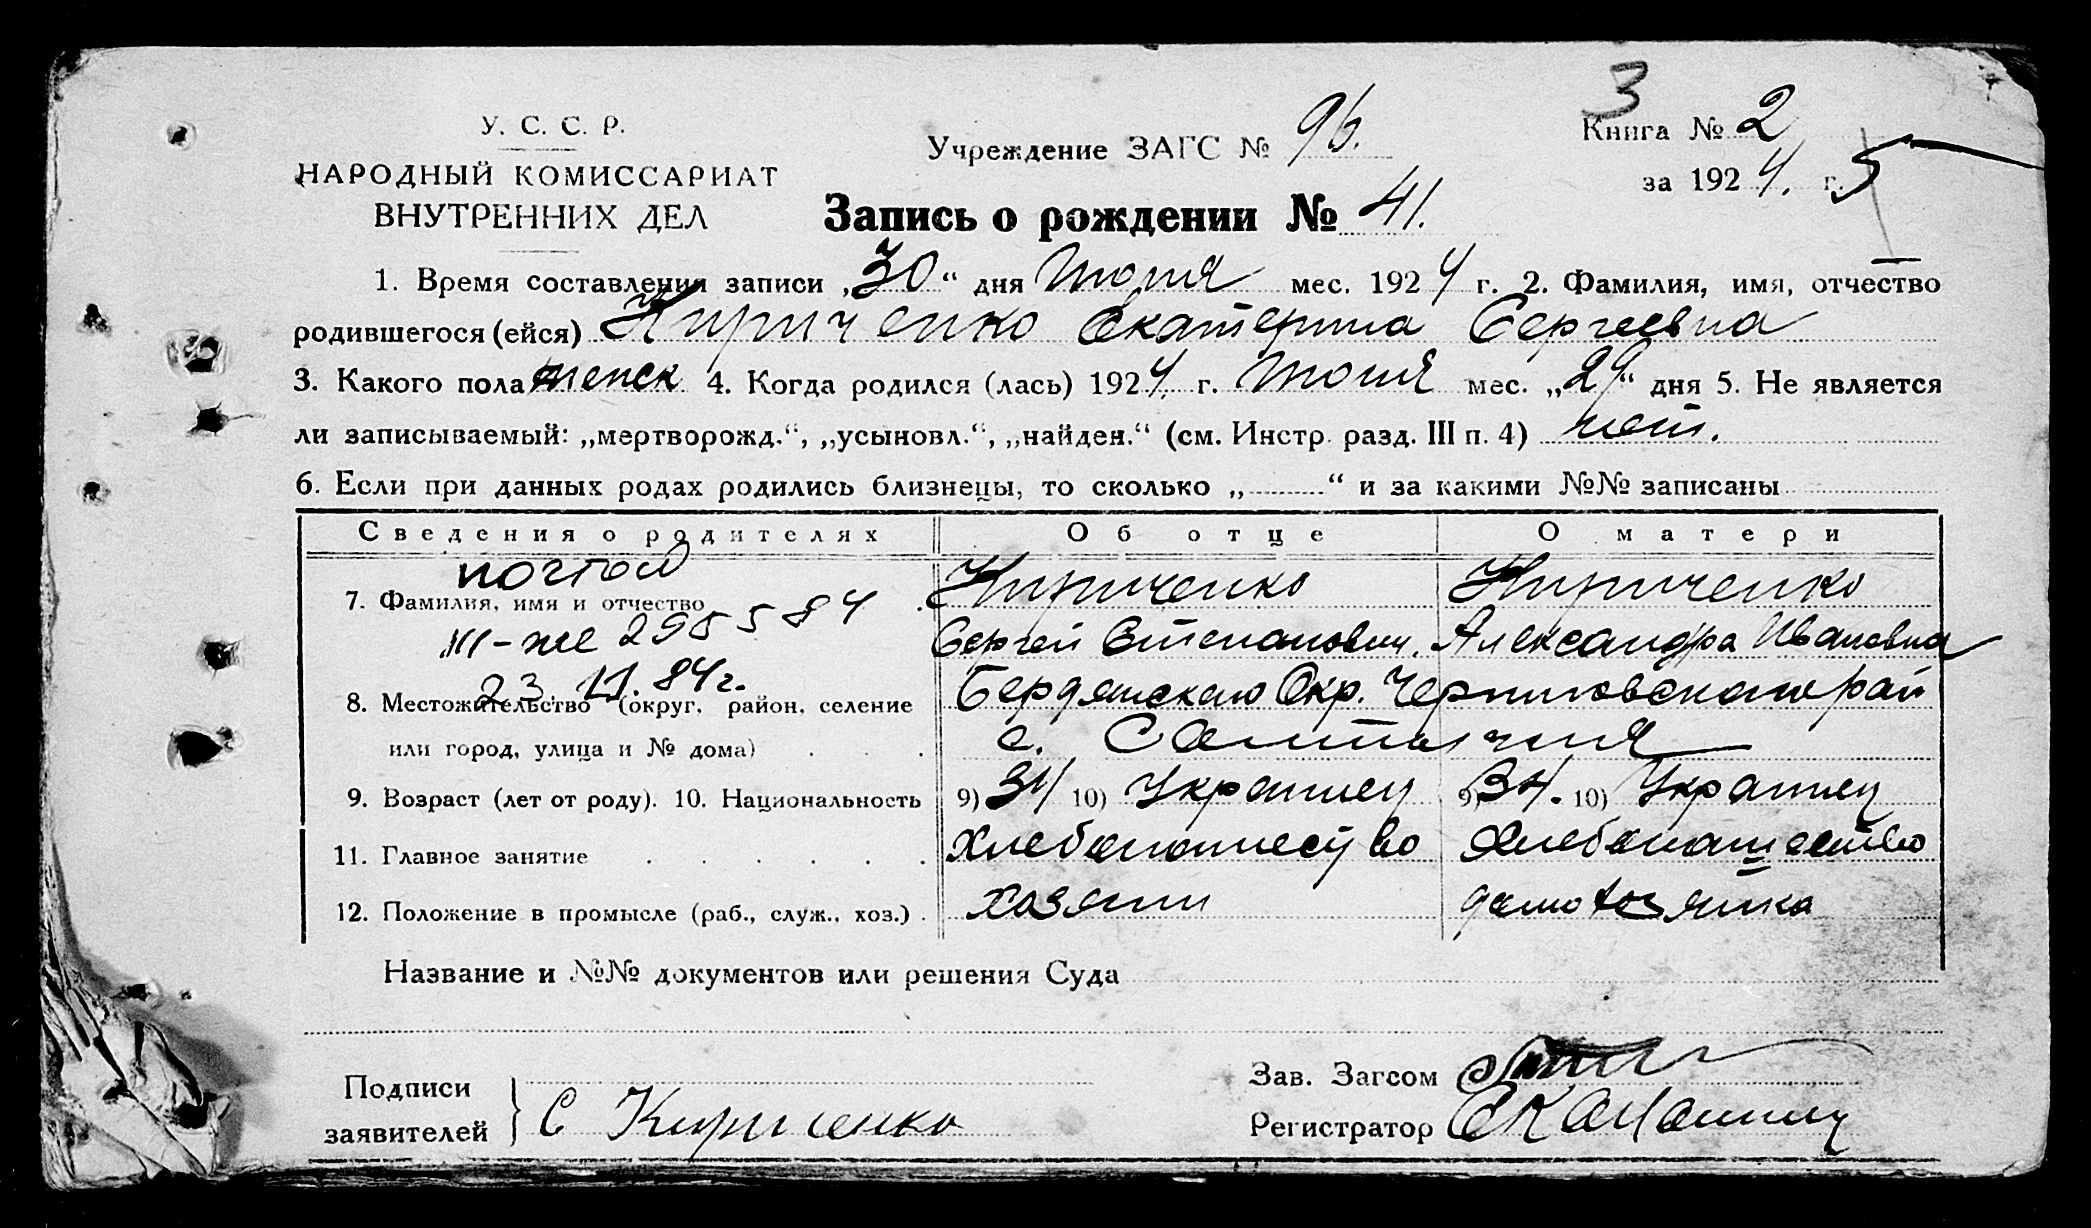 3
У. С. С. Р.
НАРОДНЫЙ КОМИССАРИАТ
ВНУТРЕННИХ ДЕЛ
Учреждение ЗАГС № 96.
Книга № 2
за 1924. г. 5
Запись о рождении № 41.
1. Время составления записи „30“ дня Июня мес. 1924 г. 2. Фамилия, имя, отчество
родившегося (ейся) Кириченко Екатерина Сергеевна
3. Какого пола женск 4. Когда родился (лась) 1924. г. Июня мес. „29“ дня 5. Не является
ли записываемый: „мертворожд.“, „усыновл.“, „найден.“ (см. Инстр. разд. III п. 4) нет.
6. Если при данных родах родились близнецы, то сколько „ “ и за какими №№ записаны
Сведения о родителях Об отце О матери
повтор
7. Фамилия, имя и отчество . Кириченко Кириченко
III-же 295584 Сергей Степанович. Александра Ивановна
23. 11. 84г.
8. Местожительство (округ, район, селение Бердянского Окр. Черниговского рай
или город, улица и № дома) . . . с. Салтычия
9. Возраст (лет от роду). 10. Национальность 9) 34 10) Украинец 9) 34. 10) Украинец
11. Главное занятие . . . . . . Хлебопашество Хлебопашество
12. Положение в промысле (раб., служ., хоз.) . хозяин домохозяйка
Название и №№ документов или решения Суда
Подписи
заявителей } С Кириченко
Зав. Загсом
Регистратор